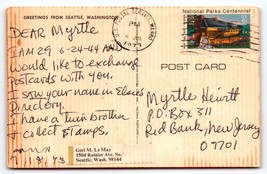 GREETINGS FROM SEATTLE, WASHINGTON
PM
National Parks Centennial
DEAR Myrtle
I AM 29 6-24-44 AND
Would like to exchange
Postcards with you.
I saw your name in
Directory.
I have a twin brother
& collect stamps,
POST CARD
Myrtle Hewitt
P.O. BOX 311
Red Bank, New Jersey
07701
Geri M. Le May
1504 Rainier Ave. So.
Seattle, Wash. 98144